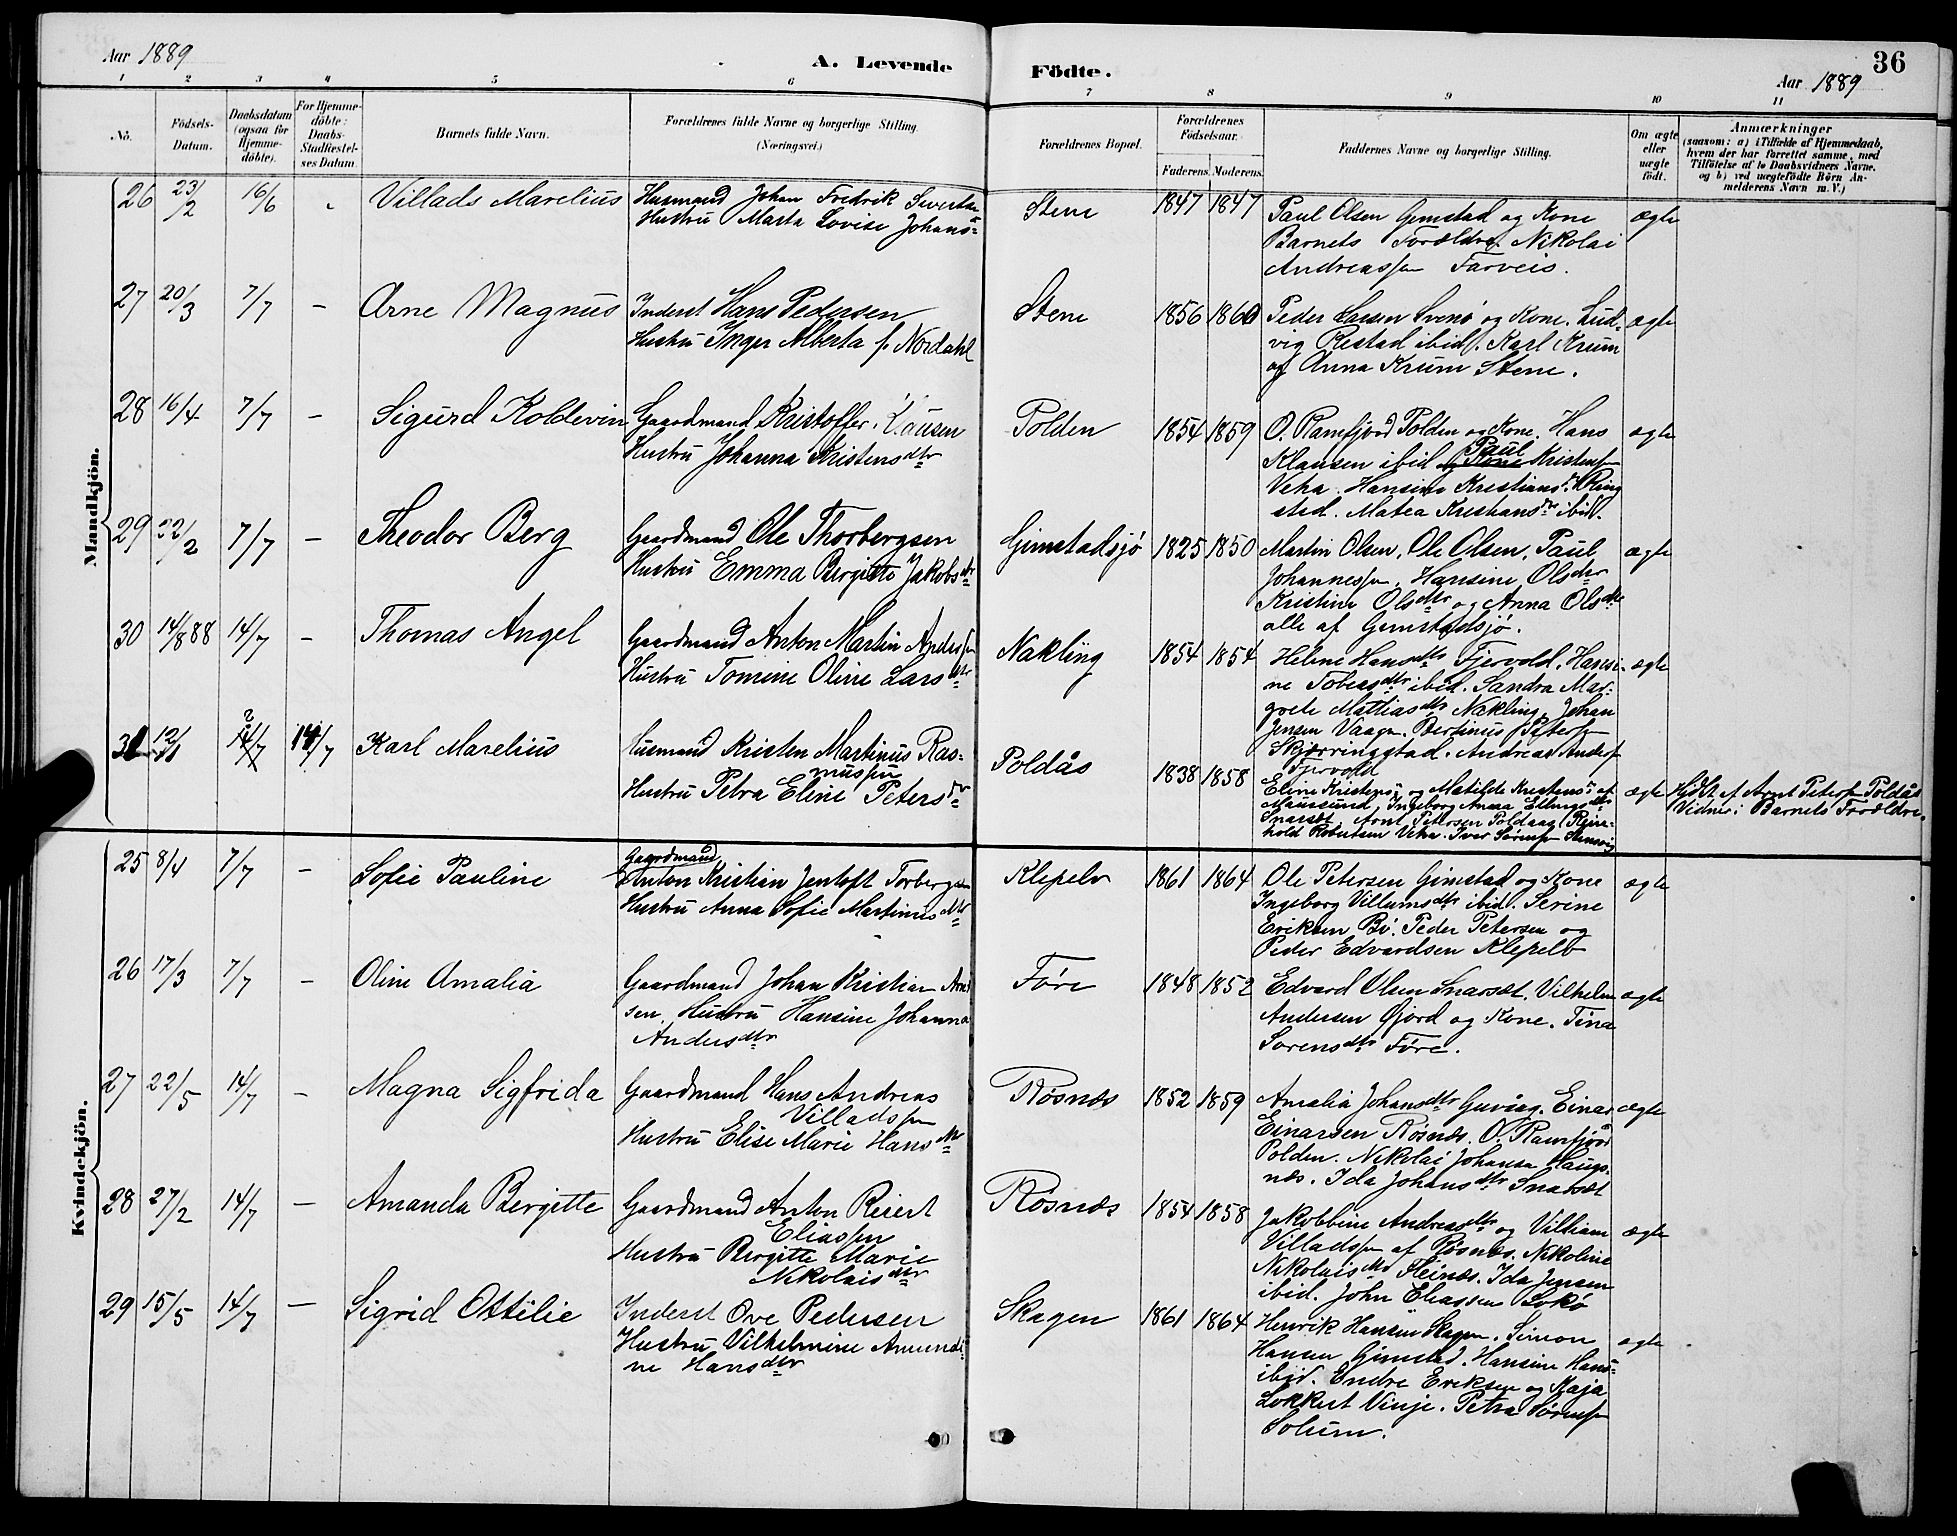 Aar 1889
A. Levende Födte.
36
Aar 1889
1 2 3 4 5 6 7 8 9 10 11
No.
Födsels-Datum.
Daabsdatum (ogsaa for Hjemme-döbte).
For Hjemme-döbte: Daabs-Stadfæstel-ses Datum.
Barnets fulde Navn.
Forældrenes fulde Navne og borgerlige Stilling. (Næringsvei.)
Forældrenes Bopæl.
Forældrenes Födselsaar.
Faderens. Moderens.
Faddernes Navne og borgerlige Stilling.
Om ægte eller uægte födt.
Anmærkninger
(saasom: a) i Tilfælde af Hjemmedaab, hvem der har forrettet samme, med Tilföielse af to Daabsvidners Navne, og b) ved uægtefödte Börn An-melderens Navn m. V.)
Mandkjön.
26 23/2 16/6 Villads Marelius
Husmand Johan Fredrik Sivertsen
Hustru Marta Lovise Johans
Stene 1847 1847
Paul Olsen Gimstad og Kone
Barnets Forældre. Nikolai
Andreassen Farveis.
ægte
27 20/3 7/7 - Arne Magnus
Inderst Hans Pedersen
Hustru Inger Alberta f. Nordahl
Stene 1856 1860
Peder Larsen Svenö og Kone. Lud-
vig Restad ibid. Karl Krum
og Anna Krum Stene.
ægte
28 16/4 7/7 - Sigurd Koldevin
Gaardmand Kristoffer Klausen
Hustru Johanna Kristensdtr
Polden 1854 1859
O. Ramfjord Polden og Kone. Hans
Klausen ibid Paul Kristens
Veha. Hansine Kristians Ring
sted. Matea Kristians ibid.
ægte
29 22/2 7/7 - Theodor Berg
Gaardmand Ole Thorbergsen
Hustru Emma Bergitte Jakobsdtr
Gimstadsjö 1825 1850
Martin Olsen, Ole Olsen, Paul
Johannessen, Hansine Olsdtr
Kristine Olsdtr og Anna Olsdtr
alle af Gimstadsjö.
ægte
30 14/8 88 14/7 - Thomas Angel
Gaardmand Anton Martin Anders
Hustru Tomine Oline Larsdtr
Nakling 1854 1854
Helene Hansdtr Fjervold. Hansi-
ne Tobiasdtr ibid. Sandra Mar-
grete Mattiasdtr Nakling. Johan
Jensen Vaagen. Bertinus Peters
Skjerringstad. Andreas Anders
Fjervold
ægte
31 12/11 14/7 Karl Marelius
Husmand Kristen Martinus Ras-
mussen
Hustru Petra Eline Peters
Poldås 1838 1858
Eline Kristens og Matilde Kristens af
Maursund, Ingeborg Anna Ellingsdtr
Snarset, Arnt Pettersen Poldaas, Rein-
hold Robertsen Veha. Iver Sörens
ægte
Hjdbt af Arnt Peters Poldås
Vidner: Barnets Forældre.
Kvindekjön.
25 8/4 7/7 - Sofie Pauline
Gaardmand
Anton Kristian Jentoft Torbergsen
Hustru Anna Sofie Martinusdtr
Klepelv 1861 1864
Ole Petersen Gimstad og Kone
Ingeborg Villumsdtr ibid. Serine
Eriksen Bö. Peder Petersen og
Peder Edvardsen Klepelv
ægte
26 17/3 7/7 - Oline Amalia
Gaardmand Johan Kristian Arnt
sen, Hustru Hansine Johanna
Andersdtr
Före 1848 1852
Edvard Olsen Snarset. Vilhelm
Andersen Gjord og Kone. Tina
Sorensdtr Före.
ægte
27 22/5 14/7 - Magna Sigfrida
Gaardmand Hans Andreas
Villads
Hustru Elise Marie Hansdtr
Rösnes 1852 1859
Amalia Johansdtr Guvåg. Einar
Einarsen Rösnes. O. Ramfjord
Polden. Nikolai Johansen Haugs-
nes. Ida Johansdtr Snarset
ægte
28 27/2 14/7 - Amanda Bergitte
Gaardmand Anton Reiert
Eliassen
Hustru Bergitte Marie
Nikolaisdtr
Rösnes 1854 1858
Jakobbine Andreasdtr og Villiam
Villads af Rösnes. Nikoline
Nikolaisdtr Steines. Ida Jensen
ibid. John Eliassen Lokö
ægte
29 15/5 14/7 - Sigrid Ottilie
Inderst Ove Pedersen
Hustru Vilhelmine Amundi
ne Hansdtr
Skagen 1861 1864
Henrik Hansen Skagen. Simon
Hansen Gimstad. Hansine Hans
ibid. Endre Eriksen og Kaja
Lokkert Vinje. Petra Sörens
Solum.
ægte